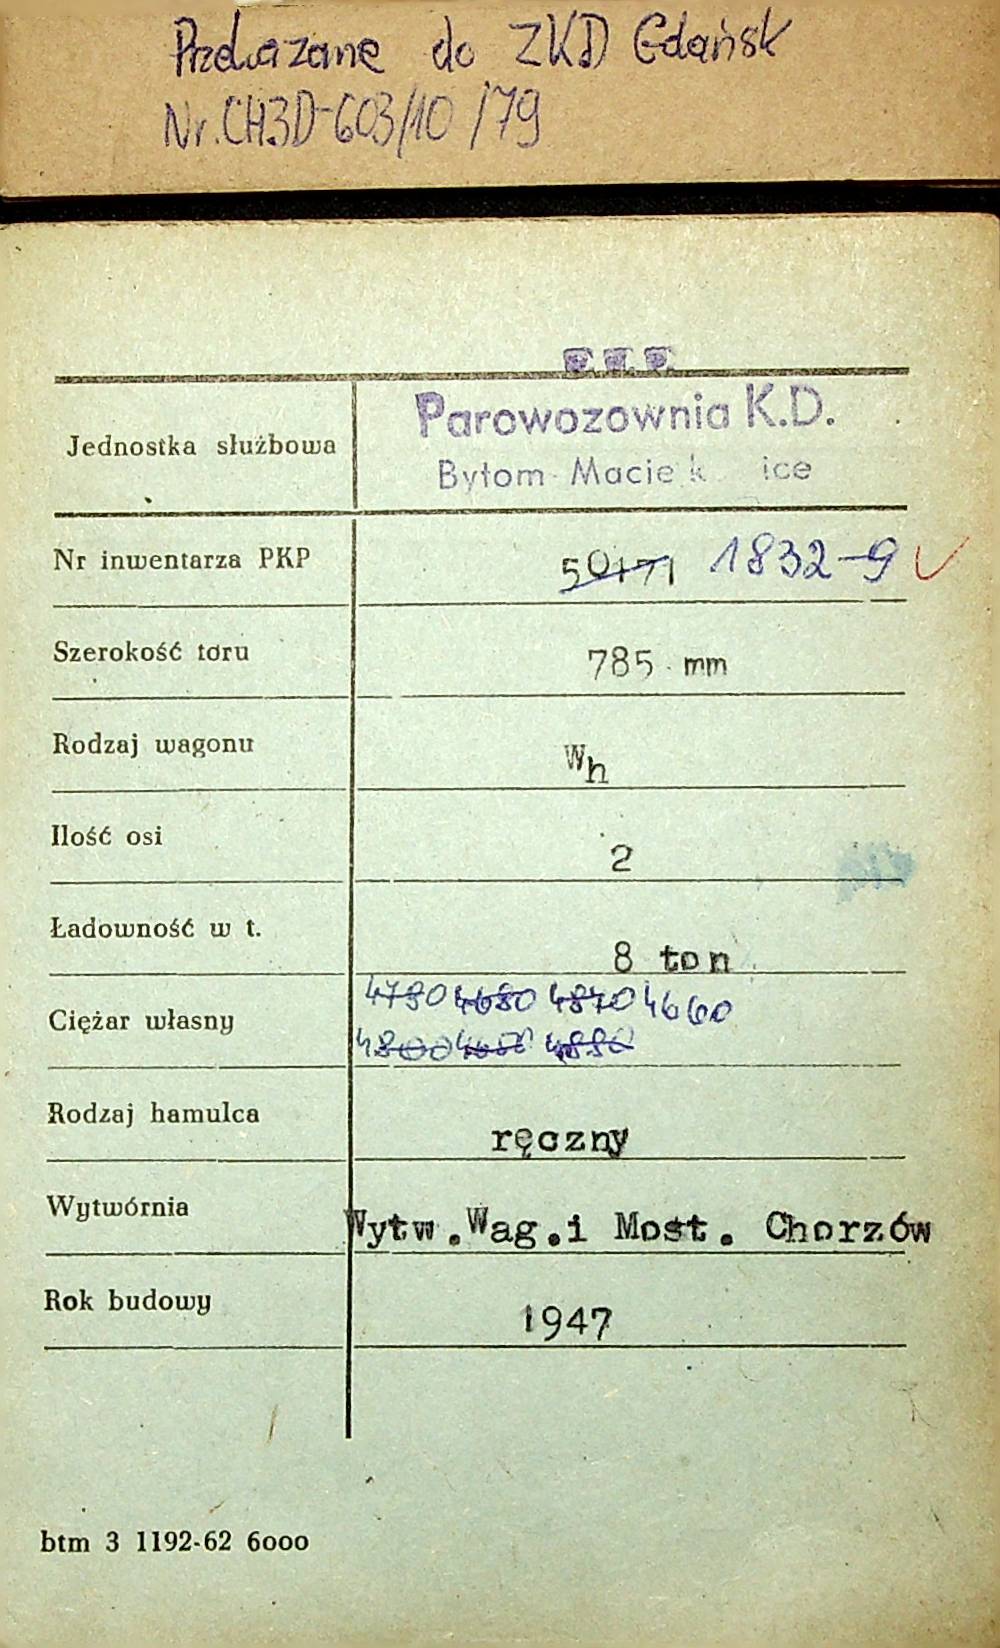 Przekazane do ZKD Gdańsk
Nr. CH3D-603/10/79
P. K. P.
Jednostka służbowa
Parowozownia K.D.
Bytom
Nr inwentarza PKP
50171 1832-9
Szerokość toru
785 mm
Rodzaj wagonu
Wh
Ilość osi
2
Ładowność w t.
8 ton
4780 4680 4870 4660
Ciężar własny
4800
Rodzaj hamulca
ręczny
Wytwórnia
Wytw.Wag.i Most. Chorzów
Rok budowy
1947
btm 3 1192-62 6000